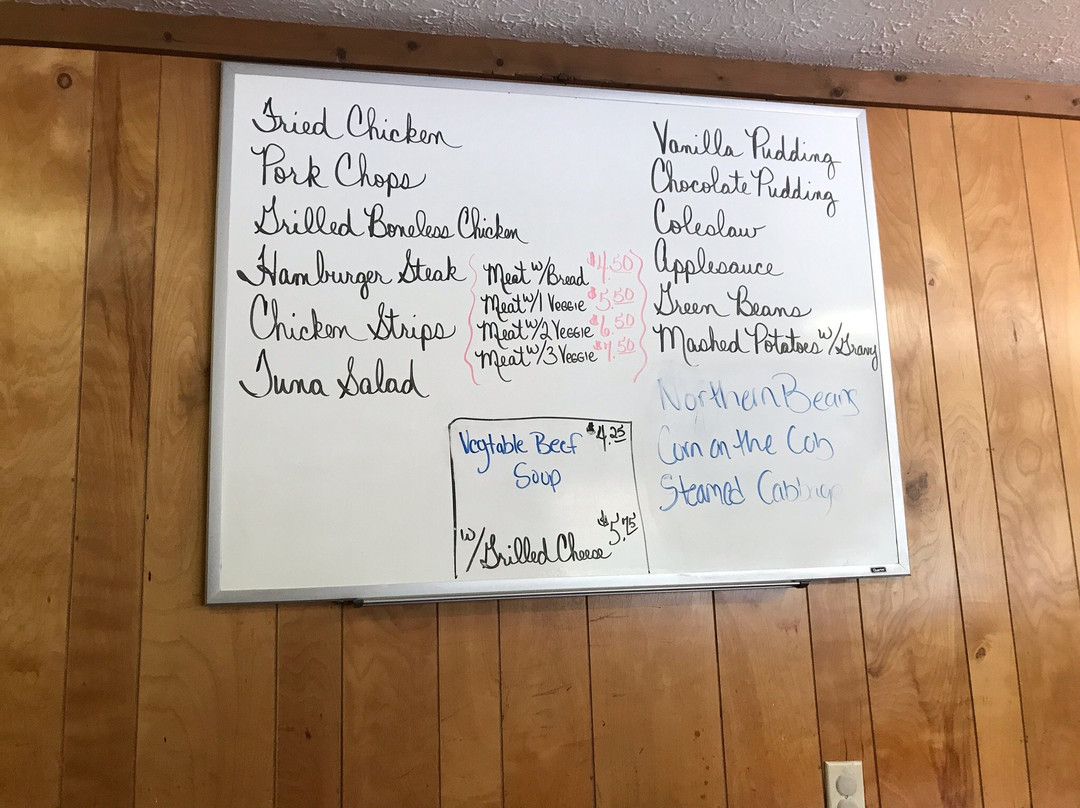 Fried Chicken
Pork Chops
Grilled Boneless Chicken
Hamburger Steak
Chicken Strips
Tuna Salad
Meat w/Bread $4.50
Meat w/1 Veggie $5.50
Meat w/2 Veggie $6.50
Meat w/3 Veggie $7.50
Vegtable Beef $4.25
Soup
w/Grilled Cheese $5.75
Vanilla Pudding
Chocolate Pudding
Coleslaw
Applesauce
Green Beans
Mashed Potatoes w/Gravy
Northern Beans
Corn on the Cob
Steamed Cabbage